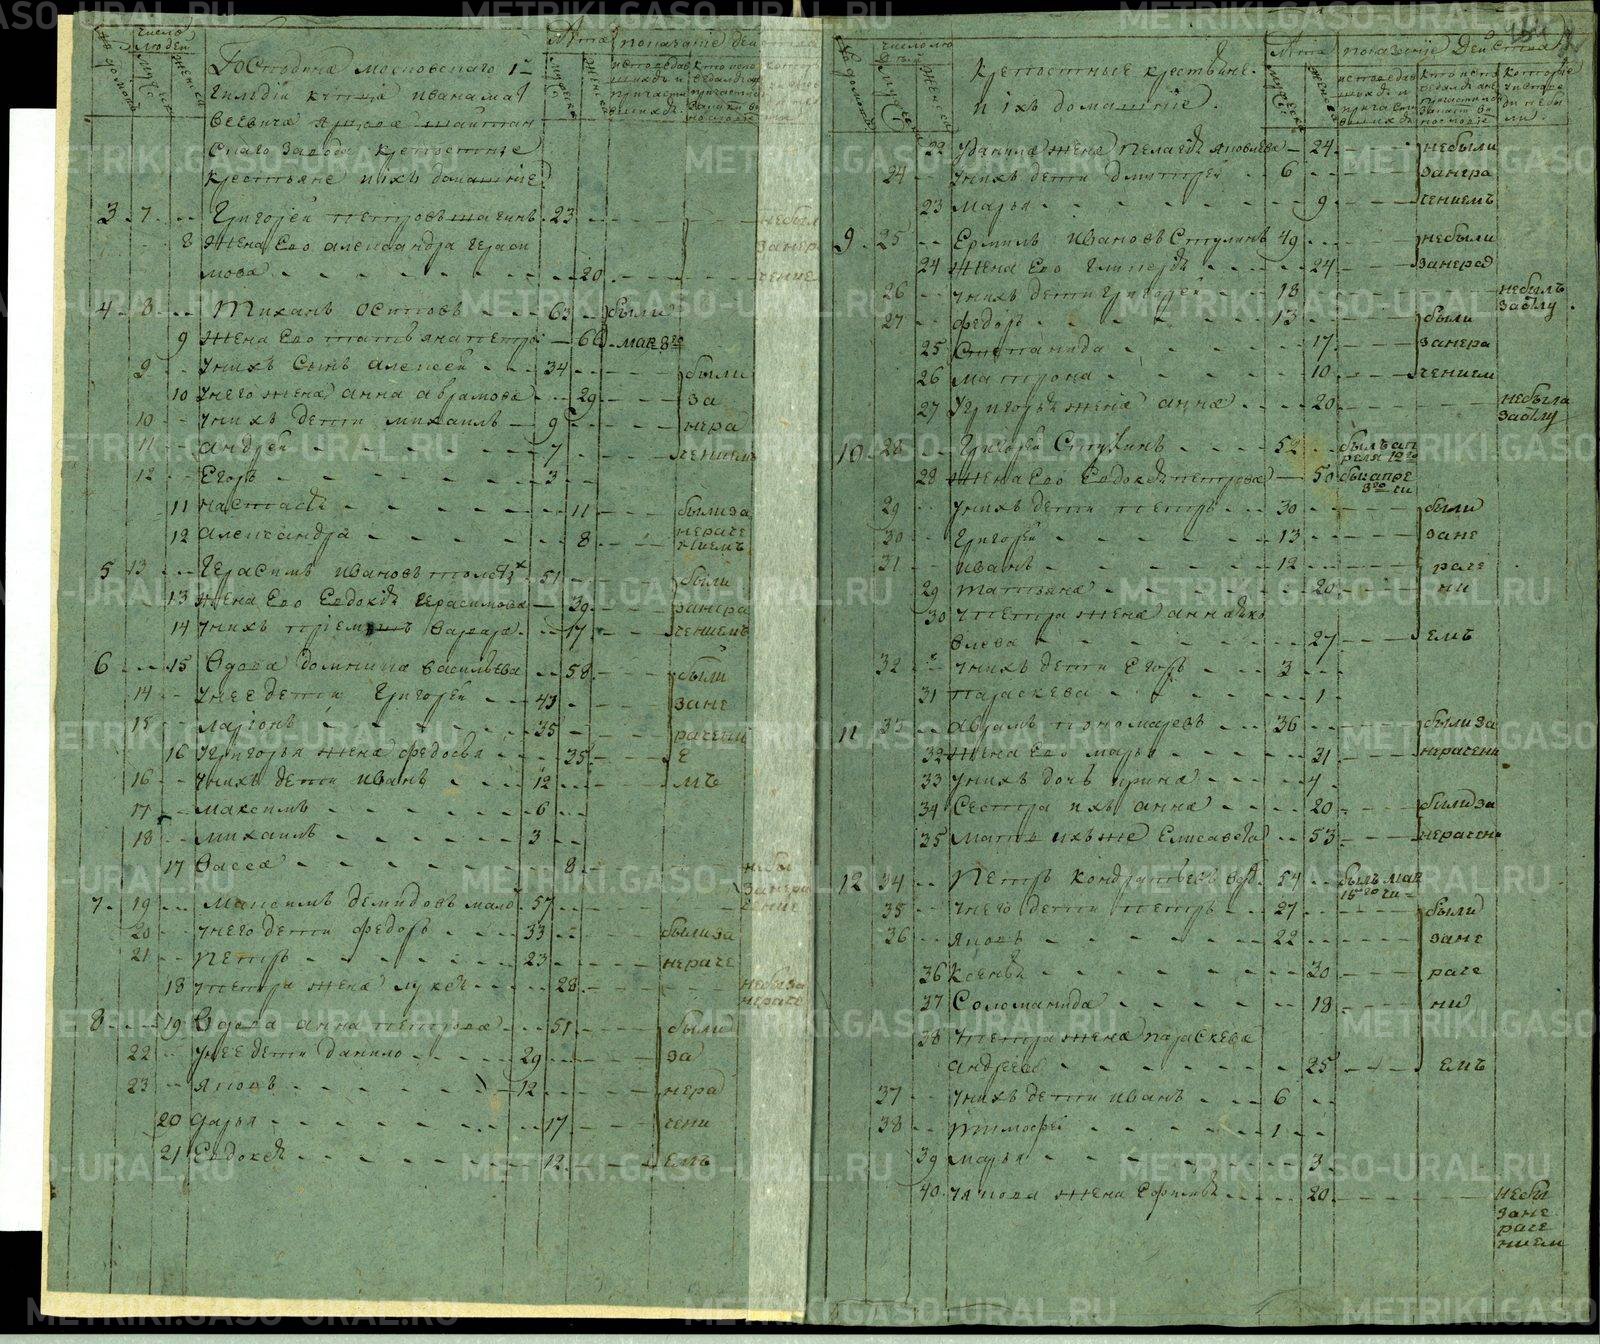 Число людей
Лета
показание действа
мужска
женска
Господина московского 1й
гильдии купца ивана мат
веевича ярцова шайтан
скаго завода крепостные
крестьяне и ихъ домашние
3 7 Григорей петровъ 23
8 жена Ево александра гераси
мова 20
4 8 Тиханъ осиповъ 63 были
9 жена Ево татьяна петро 66 мая 8го
9 уних сынъ алексей 34 были
10 унего жена анна аврамова 29 за
10 унихъ дети михаилъ 9 нера
11 андрей 7 чениемъ
12 Егоръ 3
11 настасья 11 были за
12 александра 8 нераче
ниемъ
5 13 Герасимъ ивановъ 51 были
13 жена Ево Евдокея герасимова 39 занера
14 унихъ приемышъ варвара 17 чениемъ
6 15 вдова домника васильева 58 были
14 унее дети Григорей 43 зане
15 ларионъ 35 рачени
16 угригорья жена федосья 35 е
16 унихъ дети иванъ 12 мъ
17 максимъ 6
18 михаилъ 3
17 васса 8 небы
занера
чение
7 19 максимъ демидовъ 57
20 унего дети федоръ 33 были за
21 петръ 23 нераче
18 упетра жена лукея 28 небы за
нераче
8 19 вдова анна петрова 51 были
22 унее дети данило 29 за
23 яковъ 12 нера
20 дарья 17 чени
21 Евдокея 12 емъ
крепостные крестьяне
и ихъ домашние
22 уданила жена пелагея яковлева 24 небыли
24 унихъ дети дмитрей 6 занера
23 марья 9 чениемъ
9 25 Ермилъ ивановъ 49 небыли
24 жена Ево гликерья 24 занера
26 унихъ дети григорей 18 небылъ
заотлу
27 федоръ 13 были
25 степанида 17 занера
26 матрона 10 чением
27 угригорья жена анна 20 небыла
заотлу
10 28 Григорей 52 былъ ап
реля 12го
28 жена Ево Евдокея петрова 50 бы апре
8го чи
29 унихъ дети петръ 30 были
30 григорей 13 зане
31 иванъ 12 раче
29 татьяна 20 ни
30 упетра жена анна яко
влева 27 емъ
32 унихъ дети Егоръ 3
31 параскева 1
11 33 аврамъ пономаревъ 36 были за
32 жена Ево марья 31 нерачени
33 унихъ дочь ирина 4
34 сестра ихъ анна 20 были за
35 мать ихъ же Елисавета 53 нерачени
12 34 петръ кондратьевъ 54 былъ мая
15го чи
35 унего дети петръ 27 были
36 яковъ 22 зане
36 ксенья 20 раче
37 Соломанида 18 ни
38 упетра жена параскева
андреева 25 емъ
37 унихъ дети иванъ 6
38 тимофей 1
39 марья 3
40 уякова жена 20 небы
зане
раче
нием
METRIKI.GASO-URAL.RU